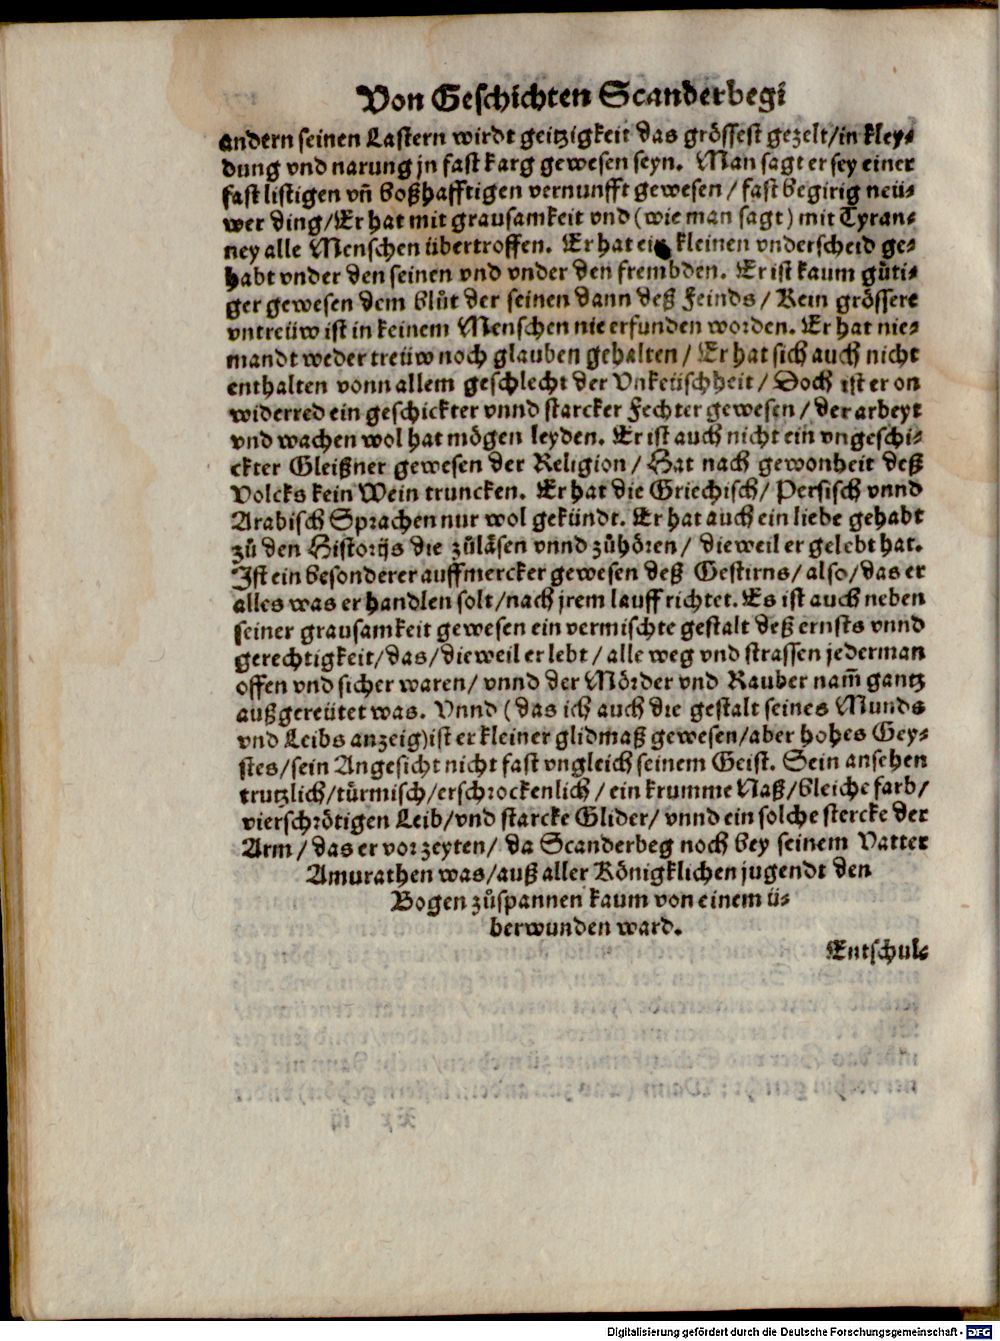 Von Geschichten Scanderbegi
andern seinen Lastern wirdt geitzigkeit das grössest gezelt/in kley⸗
dung vnd narung jn fast karg gewesen seyn. Man sagt er sey einer
fast listigen vñ boßhafftigen vernunfft gewesen / fast begirig neü⸗
wer ding/Er hat mit grausamkeit vnd (wie man sagt) mit Tyran⸗
ney alle Menschen übertroffen. Er hat ein kleinen vnderscheid ge⸗
habt vnder den seinen vnd vnder den frembden. Er ist kaum gůti⸗
ger gewesen dem blůt der seinen dann deß Feinds / Kein grössere
vntreüw ist in keinem Menschen nie erfunden worden. Er hat nie⸗
mandt weder treüw noch glauben gehalten / Er hat sich auch nicht
enthalten vonn allem geschlecht der Vnkeüschheit / Doch ist er on
widerred ein geschickter vnnd starcker Fechter gewesen / der arbeyt
vnd wachen wol hat mögen leyden. Er ist auch nicht ein vngeschi⸗
ckter Gleißner gewesen der Religion / Hat nach gewonheit deß
Volcks kein Wein truncken. Er hat die Griechisch/ Persisch vnnd
Arabisch Sprachen nur wol gekündt. Er hat auch ein liebe gehabt
zů den Historijs die zůläsen vnnd zůhören / dieweil er gelebt hat.
Ist ein besonderer auffmercker gewesen deß Gestirns/ also/das er
alles was er handlen solt/nach jrem lauff richtet. Es ist auch neben
seiner grausamkeit gewesen ein vermischte gestalt deß ernsts vnnd
gerechtigkeit/das/dieweil er lebt / alle weg vnd strassen jederman
offen vnd sicher waren/ vnnd der Mörder vnd Rauber nam̃ gantz
außgereütet was. Vnnd (das ich auch die gestalt seines Munds
vnd Leibs anzeig)ist er kleiner glidmaß gewesen/aber hohes Gey⸗
stes/sein Angesicht nicht fast vngleich seinem Geist. Sein ansehen
trutzlich/türmisch/erschrockenlich / ein krumme Naß/bleiche farb/
vierschrötigen Leib/vnd starcke Glider/ vnnd ein solche stercke der
Arm / das er vorzeyten/ da Scanderbeg noch bey seinem Vatter
Amurathen was/auß aller Königklichen jugendt den
Bogen zůspannen kaum von einem ü⸗
berwunden ward.
Entschul⸗
Digitalisierung gefördert durch die Deutsche Forschungsgemeinschaft - DFG